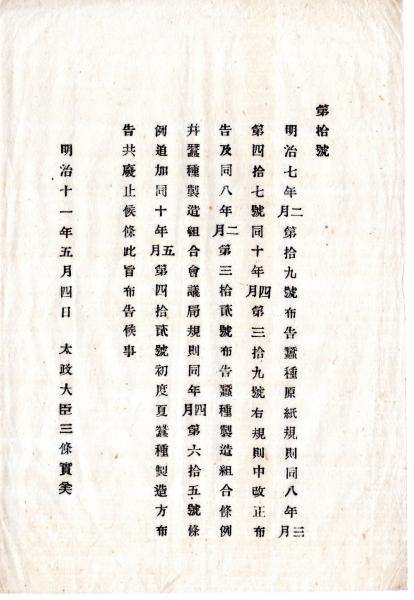 第拾號
明治七年二月第拾九號布告蠶種原紙規則同八年三月
第四拾七號同十年四月第三拾九號右規則中改正布
告及同八年二月第三拾貳號布告蠶種製造組合條例
幷蠶種製造組合會議局規則同年四月第六拾五號條
例追加同十年五月第四拾貳號初度夏蠶種製造方布
告共廢止候條此旨布告候事
明治十一年五月四日 太政大臣三條實美